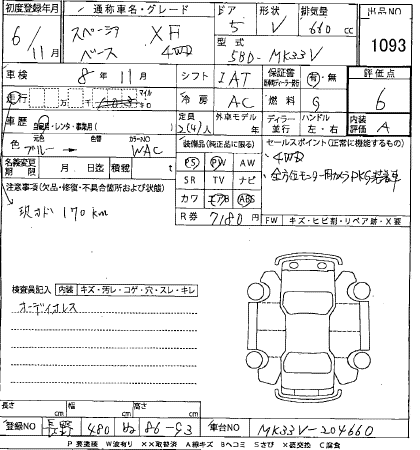 初度登録年月 通称車名・グレード ドア 形状 排気量 出品NO
6/11月 スペーシア ベース XF 4WD 5 V 660 cc 1093
型式 5BD-MK33V
車検 8年11月 シフト IAT 保証書 有・無 評価点
走行 マイル 万 千 冷房 AC 燃料 G 6
車歴 自家用・レンタ・事業用 定員 2(4)人 外車モデル ディーラー・並行 ハンドル 左・右 内装評価 A
色 元色 ブルー 色替 カラーNO WAC 装備品(純正品に限る) セールスポイント(正常に機能するもの)
名義変更期限 月 日迄 積載 PS PW AW ・4WD
SR TV ナビ ・全方位モニター用カメラPKG装着車
注意事項(欠品・修復・不具合箇所および状態) カワ エアB ABS
現メーター 170km R券 7180円 FW キズ・ヒビ割・リペア跡・X要
検査員記入 内装 キズ・汚レ・コゲ・穴・スレ・キレ
オーディオレス
長さ cm 幅 cm 高さ cm
登録NO 長野 480 86-93 車台NO MK33V-204660
P 要塗装 W 波有り XX取替済 A線キズ Bヘコミ Sさび X要交換 C腐食